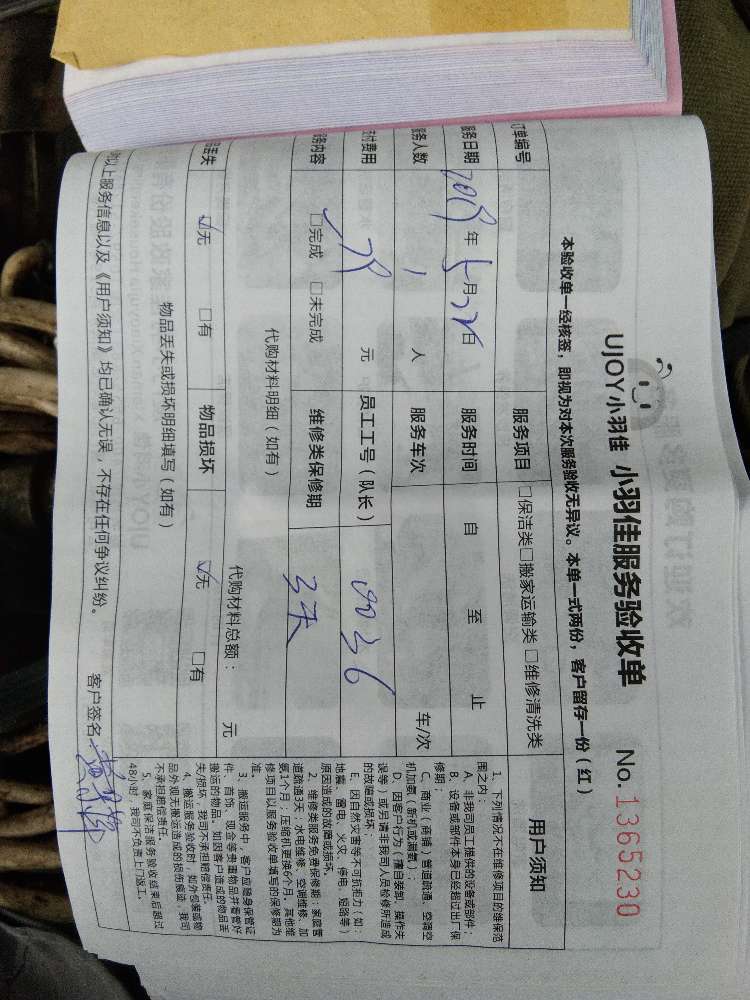 UJOY小羽佳 小羽佳服务验收单 No.1365230
本验收单一经核签，即视为对本次服务验收无异议。本单一式两份，客户留存一份（红）
订单编号 服务项目 □保洁类□搬家运输类 □维修清洗类
服务日期 年 5月28日 服务时间 自 至 止
服务人数 1 人 服务车次 车/次
付费用 元 员工工号（队长） 0036
务内容 □完成 □未完成 维修类保修期 3天
代购材料明细（如有） 代购材料总额： 元
品丢失 ☑无 □有 物品损坏 ☑无 □有
物品丢失或损坏明细填写（如有）
以上服务信息以及《用户须知》均已确认无误，不存在任何争议纠纷。 客户签名
用户须知
1、下列情况不在维修项目的维保范
围之内：
A、非我司员工提供的设备或部件；
B、设备或部件本身已经超过出厂保
修期；
C、商业（商铺）管道疏通、空调空
机加氨（新机或漏氨）；
D、因客户行为（擅自装卸、操作失
误等）或另请非我司人员检修所造成
的故障或损坏；
E、因自然灾害等不可抗拒力（如：
地震、雷电、火灾、停电、短路等）
原因造成的故障或损坏。
2、维修类服务免费保修期：家庭管
道疏通3天；水电维修、空调维修、加
氨1个月；压缩机更换6个月。其他维
修项目以服务验收单填写的保修期为
准。
3、搬运服务中，客户应随身保管证
件、首饰、现金等贵重物品并看管好
搬运的物品。如因客户造成的物品丢
失/损坏，我司不承担赔偿责任。
4、搬运服务验收时，如外包装或物
品外观无搬运造成的损伤痕迹，我司
不承担赔偿责任。
5、家庭保洁服务验收结束后超过
48小时，我司不负责上门返工。